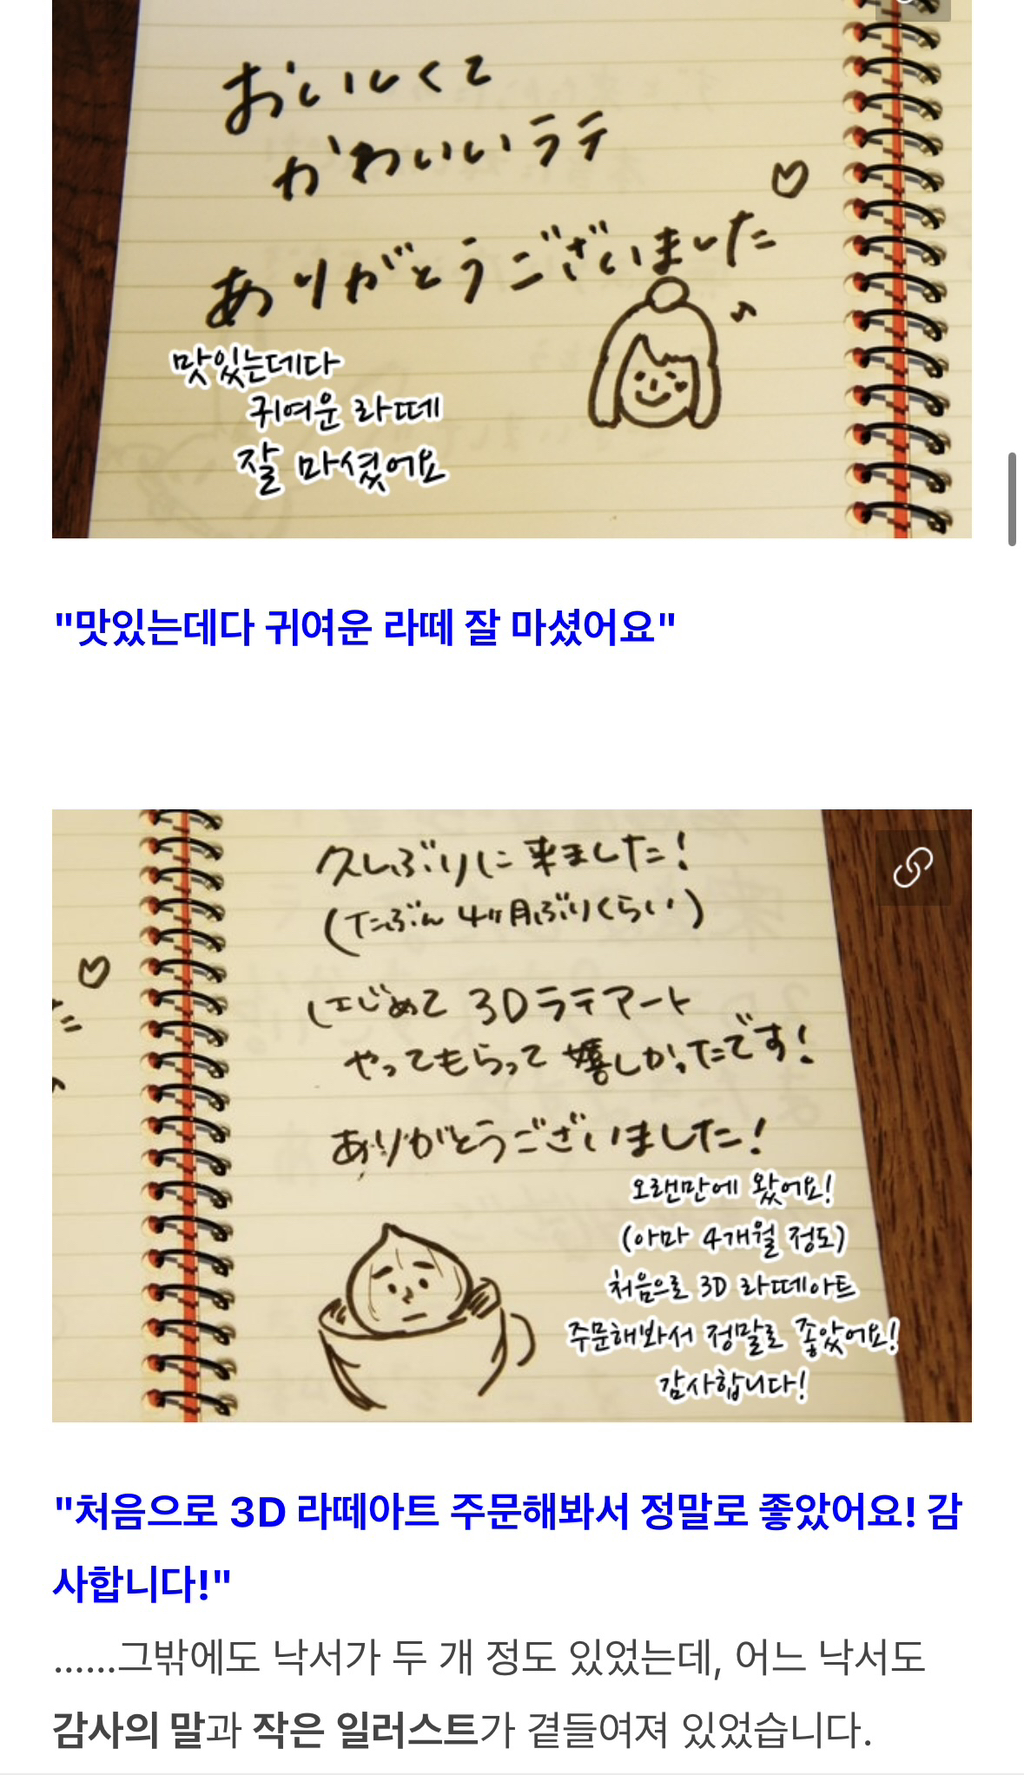 おいしくて
かわいいラテ
ありがとうございました
맛있는데다
귀여운 라떼
잘 마셨어요
"맛있는데다 귀여운 라떼 잘 마셨어요"
久しぶりに来ました!
(たぶん 4ヶ月ぶりくらい)
はじめて 3Dラテアート
やってもらって嬉しかったです!
ありがとうございました!
오랜만에 왔어요!
(아마 4개월 정도)
처음으로 3D 라떼아트
주문해봐서 정말로 좋았어요!
감사합니다!
"처음으로 3D 라떼아트 주문해봐서 정말로 좋았어요! 감
사합니다!"
……그밖에도 낙서가 두 개 정도 있었는데, 어느 낙서도
감사의 말과 작은 일러스트가 곁들여져 있었습니다.